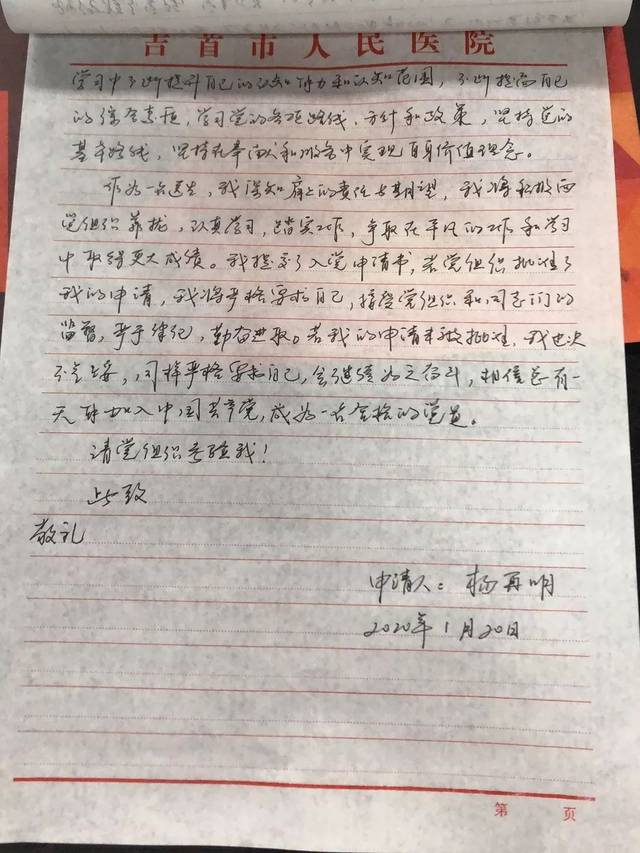 吉首市人民医院
学习中不断提升自己的认知能力和认知范围，不断提高自己
的综合素质，学习党的各项路线、方针和政策，坚持党的
基本路线，坚持在奉献和服务中实现自身价值理念。
作为一名医生，我深知肩上的责任与期望，我将积极向
党组织靠拢，认真学习，踏实工作，争取在平凡的工作和学习
中取得更大成绩。我提交了入党申请书，若党组织批准了
我的申请，我将严格要求自己，接受党组织和同志们的
监督，严于律己，勤奋进取。若我的申请未被批准，我也决
不气馁，同样严格要求自己，会继续为之奋斗，相信总有一
天能加入中国共产党，成为一名合格的党员。
请党组织考验我！
此致
敬礼
申请人：杨再明
2020年1月20日
第 页